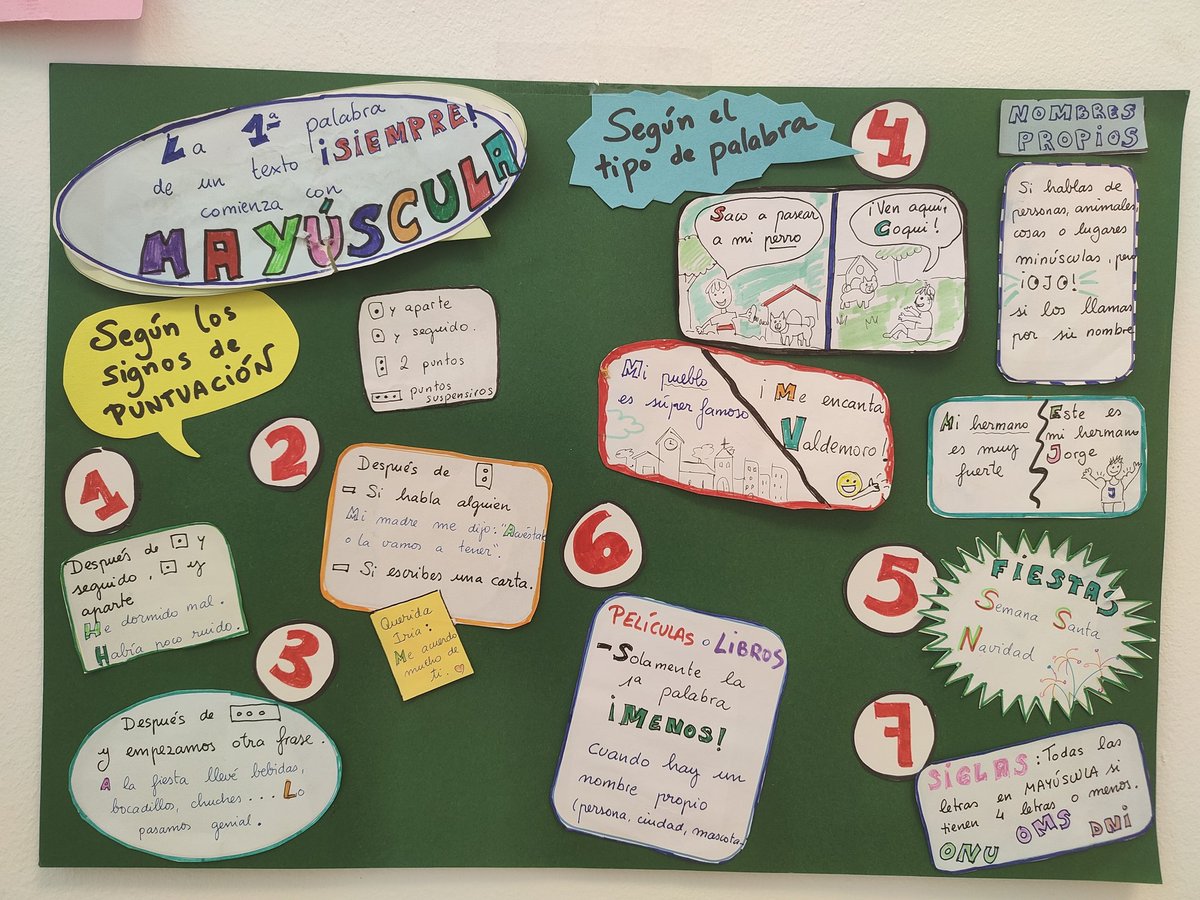 La 1ª palabra
de un texto ¡SIEMPRE!
comienza con
MAYÚSCULA
Según los
signos de
PUNTUACIÓN
y aparte
y seguido.
2 puntos
puntos
suspensivos
1
Después de . y
seguido, . y
aparte
He dormido mal.
Había poco ruido.
2
Después de :
Si habla alguien
Mi madre me dijo: "
o la vamos a tener".
Si escribes una carta.
Querida
Iria:
Me acuerdo
mucho de
ti.
3
Después de ...
y empezamos otra frase.
A la fiesta llevé bebidas,
bocadillos, chuches... Lo
pasamos genial.
Según el
tipo de palabra
4
NOMBRES
PROPIOS
Si hablas de
personas, animales,
cosas o lugares
minúsculas, pero
¡OJO!
si los llamas
por su nombre
Saco a pasear
a mi perro
¡Ven aquí,
Coqui!
Mi pueblo
es súper famoso
¡Me encanta
Valdemoro!
Mi hermano
es muy
fuerte
Este es
mi hermano
Jorge
J
5
FIESTAS
Semana Santa
Navidad
6
PELÍCULAS o LIBROS
-Solamente la
1ª palabra
¡MENOS!
Cuando hay un
nombre propio
(persona, ciudad, mascota
7
SIGLAS: Todas las
letras en MAYÚSCULA si
tienen 4 letras o menos.
ONU OMS DNI